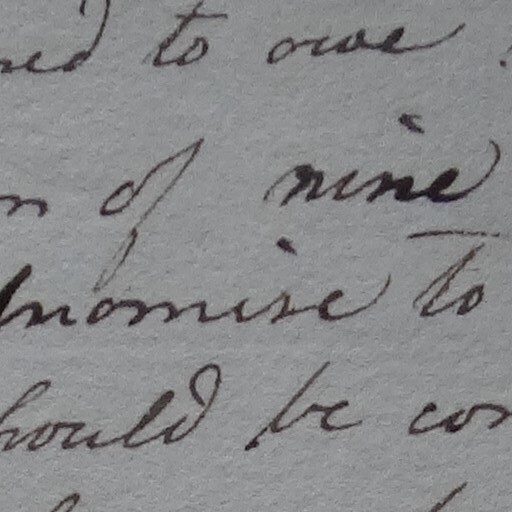 ned to owe
n of nine
promise to
hould be con